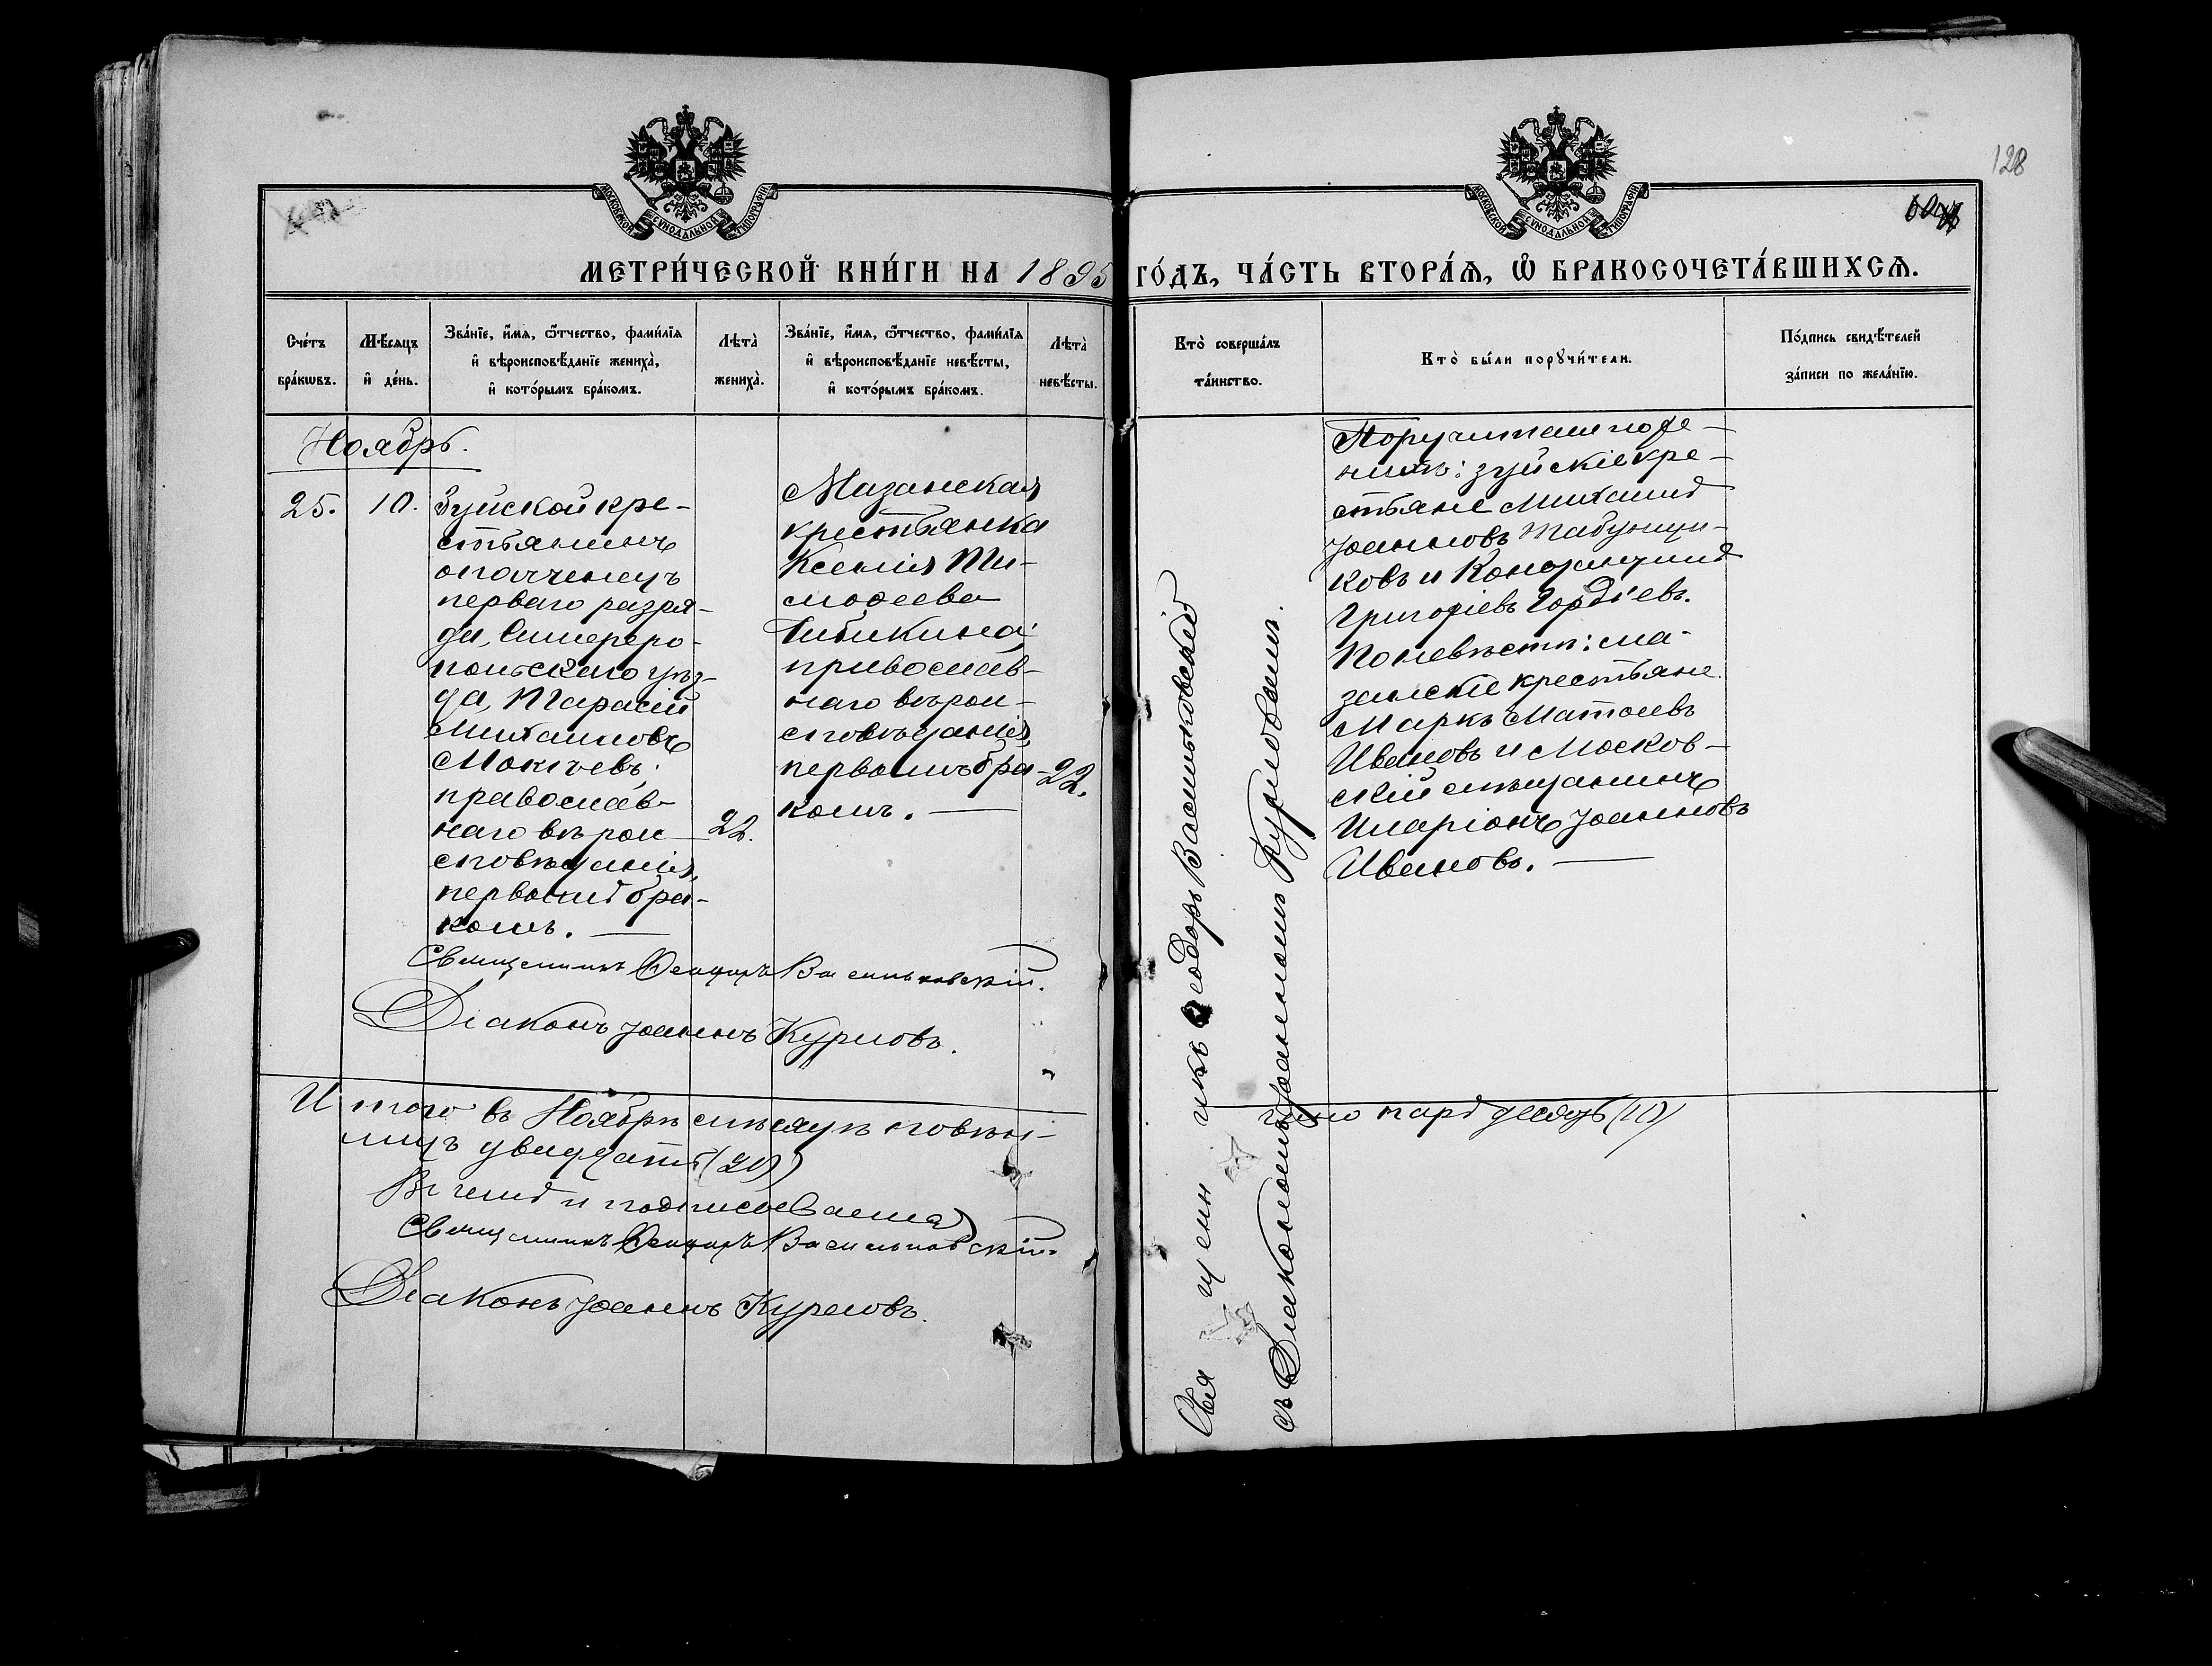 128
МОСКОВСКОЙ СѴНОДАЛЬНОЙ ТИПОГРАФІИ
МОСКОВСКОЙ СѴНОДАЛЬНОЙ ТИПОГРАФІИ
МЕТРИ́ЧЕСКОЙ КНИ́ГИ НА 1895 ГО́ДЪ, ЧА́СТЬ ВТОРА́Я, Ѡ БРАКОСОЧЕТА́ВШИХСЯ.
Сче́тъ
бра́кѡвъ.
Мѣ́сяцъ
и де́нь.
Зва́нїе, и́мя, ѻ́тчество, фами́лїя
и вѣроисповѣ́данїе жениха̀,
и кото́рымъ бра́комъ.
Лѣта̀
жениха̀.
Зва́нїе, и́мя, ѻ́тчество, фами́лїя
и вѣроисповѣ́данїе невѣ́сты,
и кото́рымъ бра́комъ.
Лѣта̀
невѣ́сты.
Кто̀ соверша́лъ
та́инство.
Кто̀ бы́ли порꙋчи́тели.
По́дпись свидѣ́телей
за́писи по жела́нїю.
Ноябрь.
25.
10.
Зуйской кре-
стьянинъ
ополченецъ
перваго разря-
да, Симферо-
польскаго уѣз-
да, Тарасій
Михаиловъ
Мокіевъ;
православ-
наго вѣрои-
сповѣданія,
первымъ бра-
комъ.
22.
Мазанская
крестьянка
Ксенія Ти-
моѳеева
Чибикина;
православ-
наго вѣрои-
сповѣданія,
первымъ бра-
комъ.
22.
Священникъ Ѳеодоръ Васильковскій
съ Діакономъ Іоанномъ Куриловымъ.
Поручители по же-
нихѣ: зуйскіе кре-
стьяне Михаилъ
Іоанновъ Табунщи-
ковъ и Константинъ
Григоріевъ Гордѣевъ.
По невѣстѣ: ма-
занскіе крестьяне
Маркъ Матѳіевъ
Ивановъ и Москов-
скій мѣщанинъ
Иларіонъ Іоанновъ
Ивановъ.
Священникъ Ѳеодоръ Васильковскій.
Діаконъ Іоаннъ Куриловъ.
Итого въ Ноябрѣ мѣсяцѣ повѣн-
чано паръ десять (10)
лицъ двадцать (20)
Въ чемъ и подписываемся
Священникъ Ѳеодоръ Васильковскій
Діаконъ Іоаннъ Куриловъ.